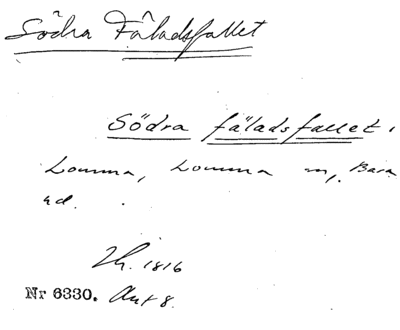 Södra Fäladsfallet
Södra fäladsfallet,
Lomma, Lomma sn, Bara
hd.
Lh. 1816
Nr 6330. Akt 8.